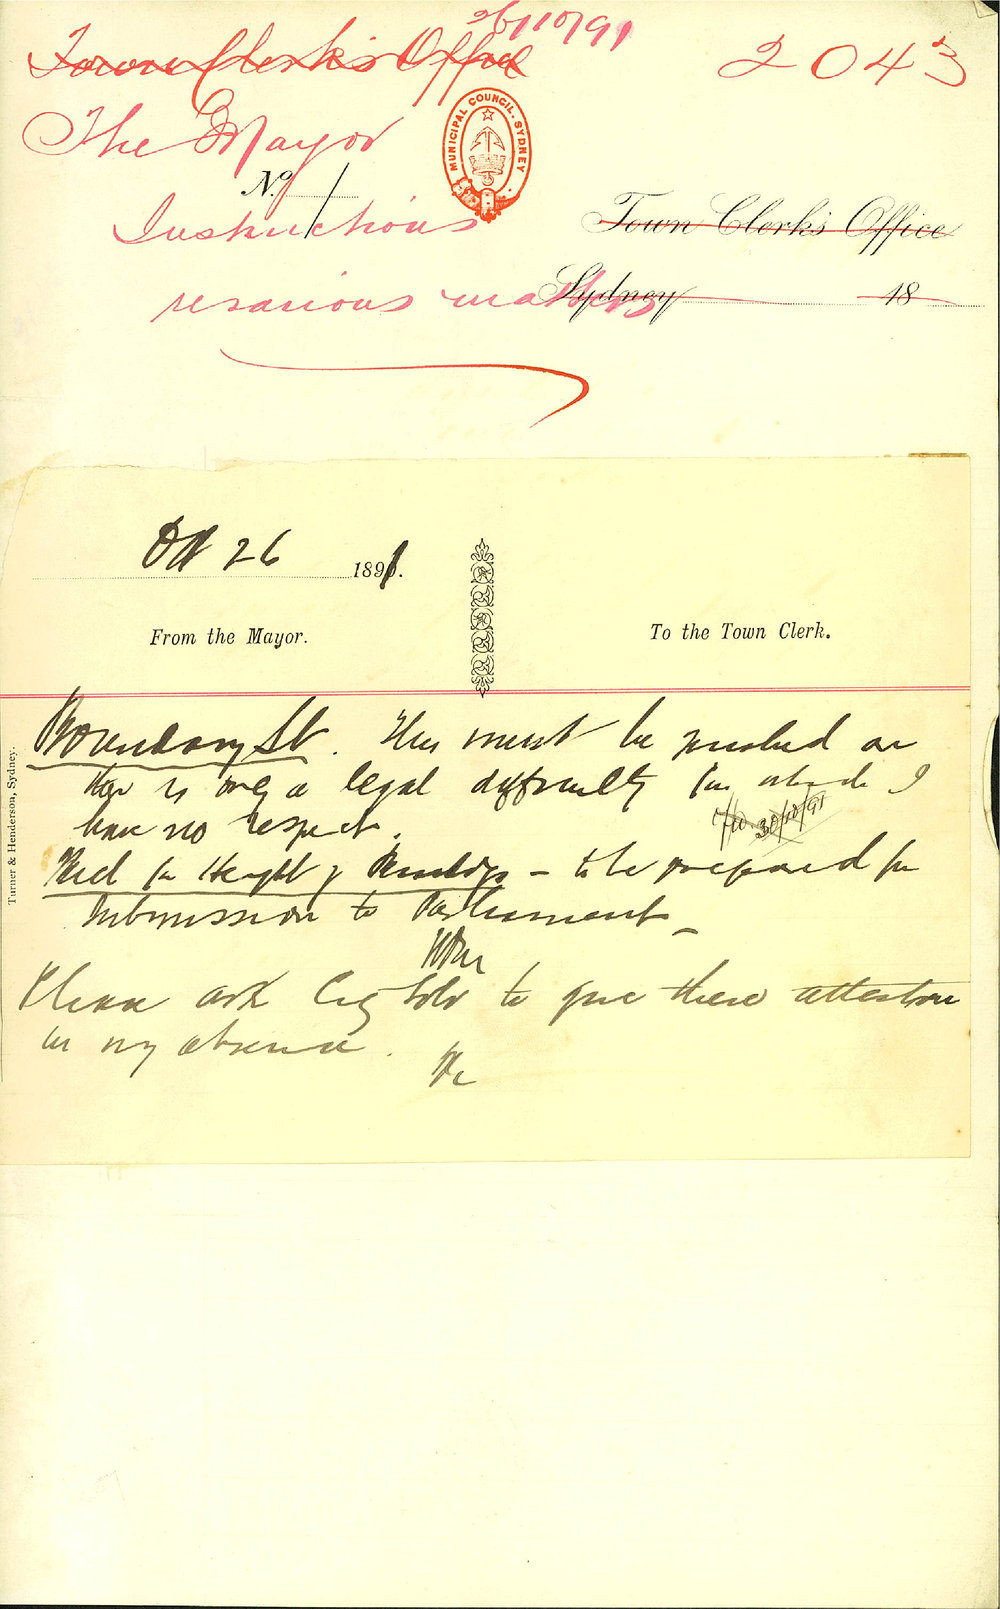 26/10/91
Town Clerk's Office
2043
The Mayor
MUNICIPAL COUNCIL. SYDNEY
No.
Instructions
Town Clerk's Office
re various matters
Sydney 18
Oct 26 1891.
From the Mayor.
To the Town Clerk.
Boundary St. This must be pushed on
there is only a legal difficulty for which I
have no respect.
30/10/91
Bill for Height of Buildings - to be prepared for
submission to Parliament -
Please ask City Solr to give these attention
in my absence.
Turner & Henderson, Sydney.